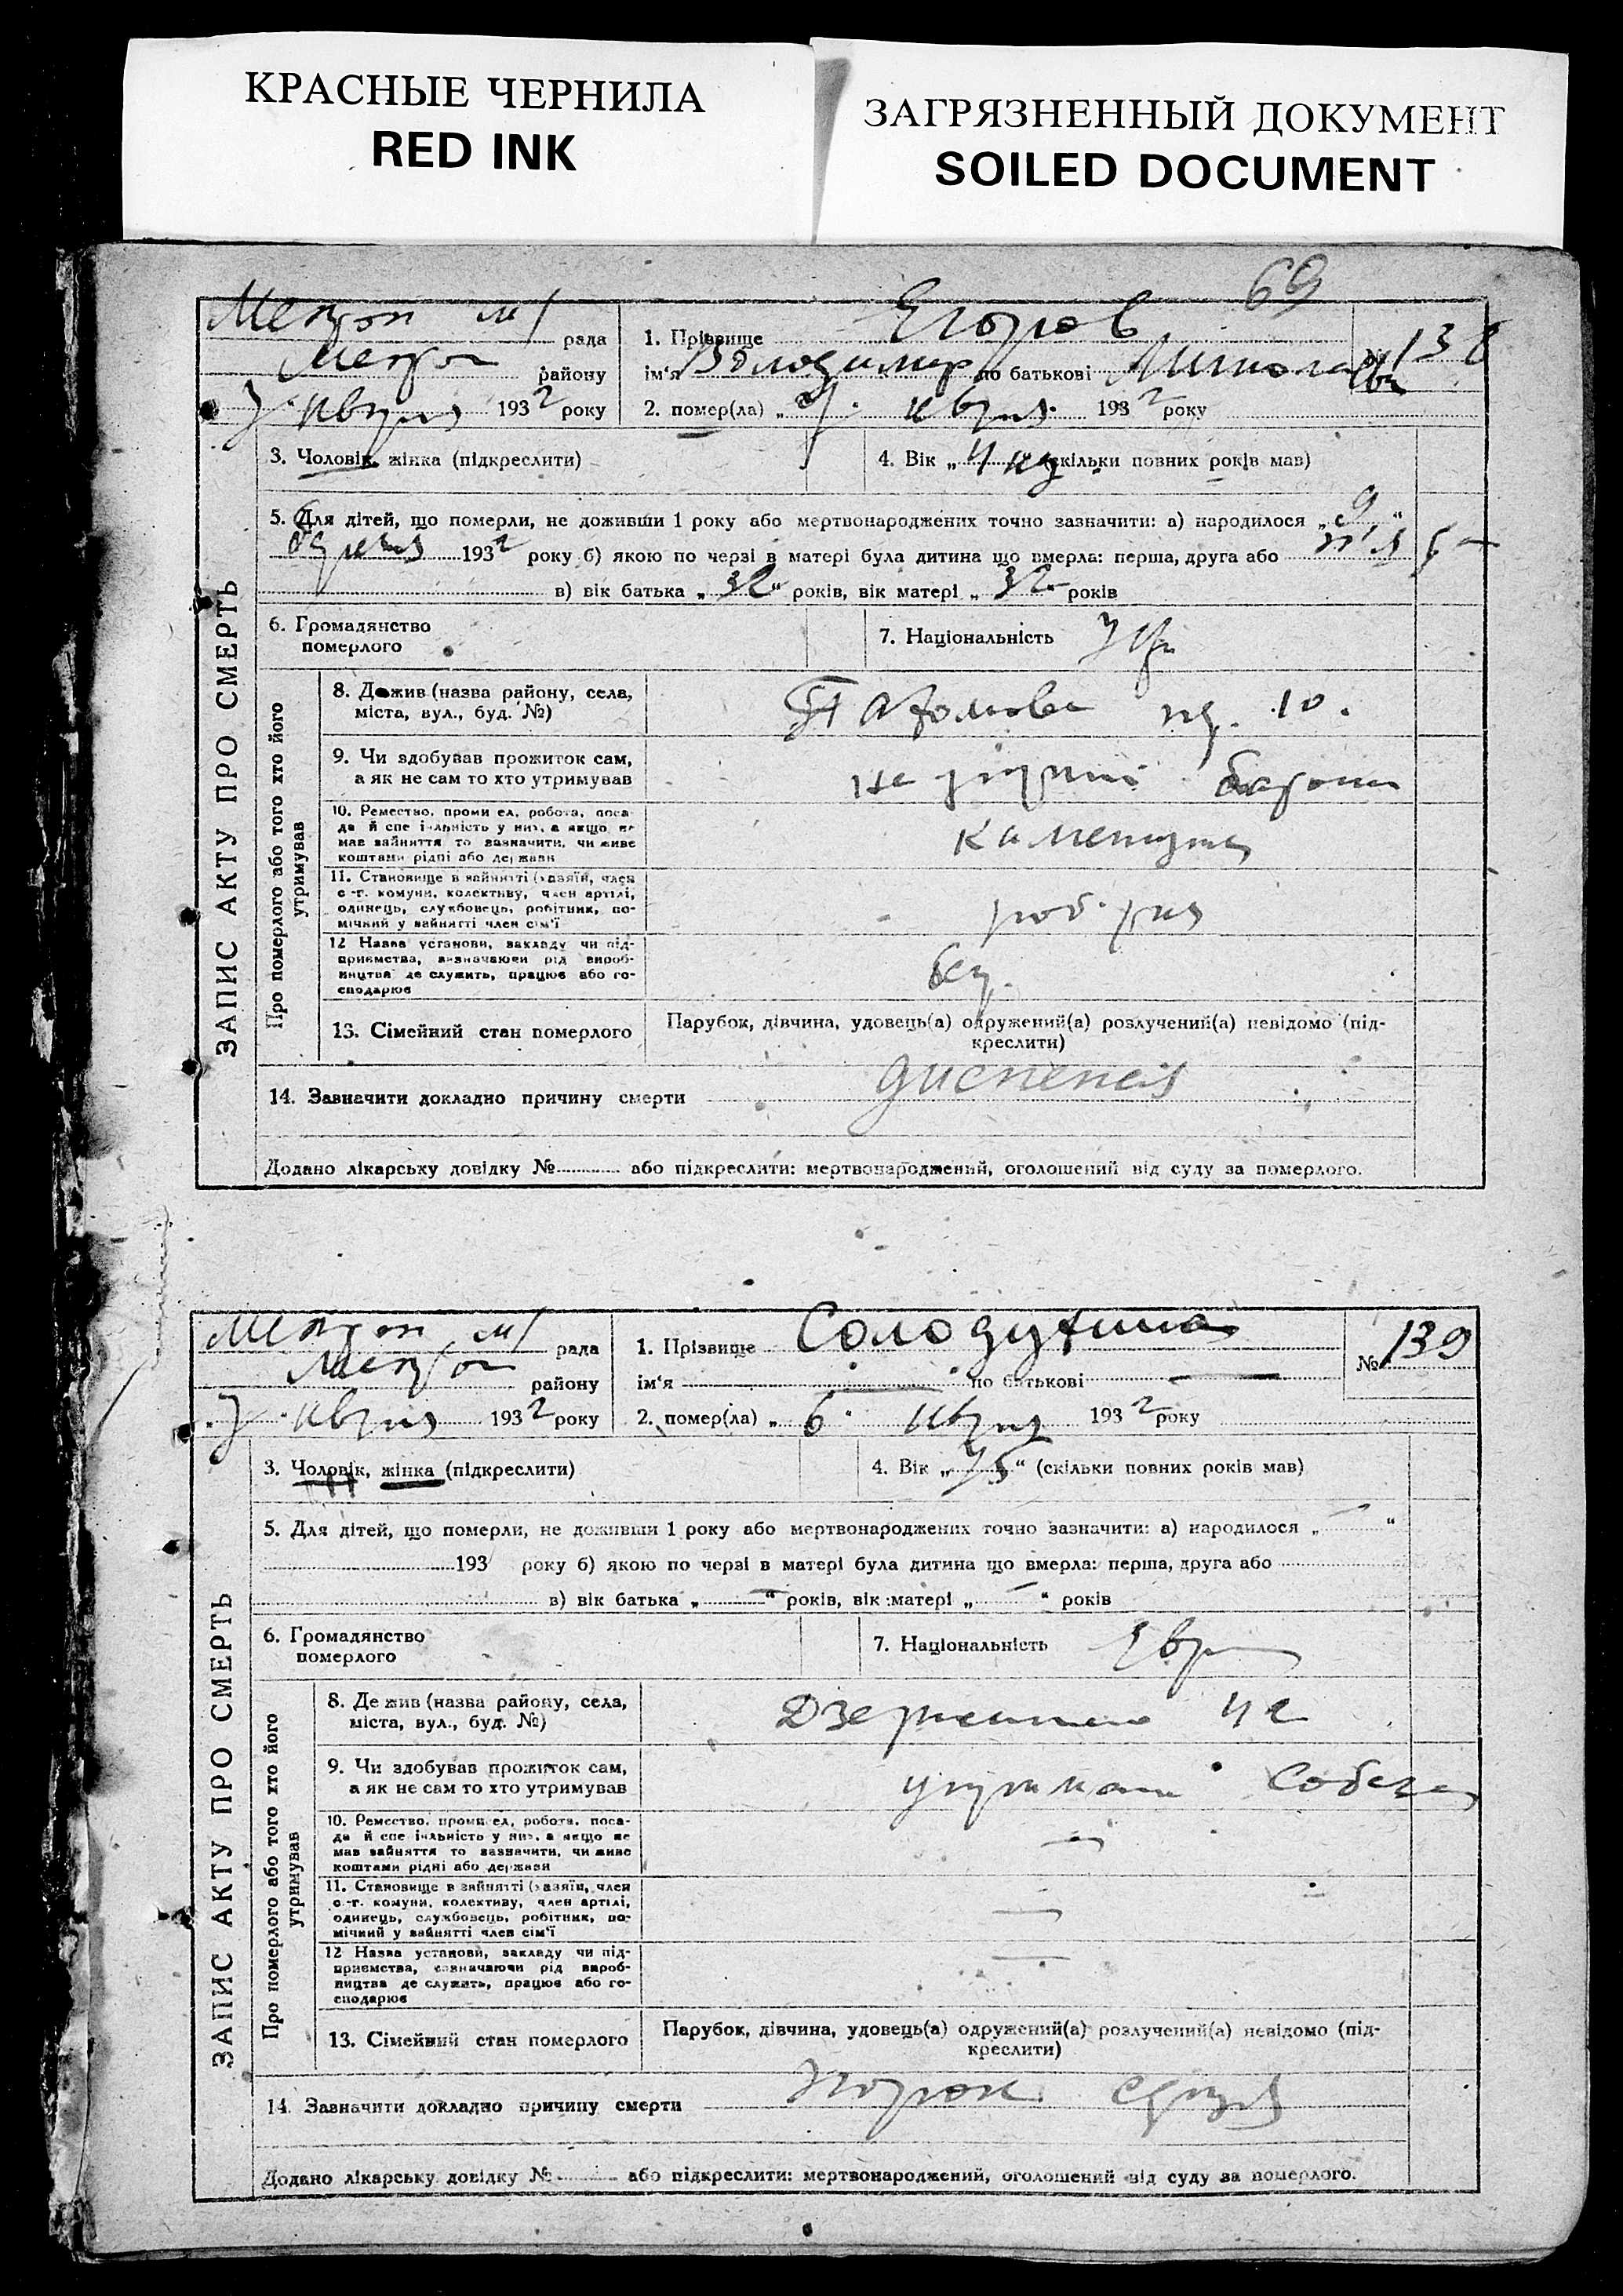 КРАСНЫЕ ЧЕРНИЛА
RED INK
ЗАГРЯЗНЕННЫЙ ДОКУМЕНТ
SOILED DOCUMENT
69
ЗАПИС АКТУ ПРО СМЕРТЬ
рада
району
7 квітня 1932 року
1. Прізвище Егоров
№ 138
ім'я Володимир по батькові
2. помер(ла) „ квітня 1932 року
3. Чоловік, жінка (підкреслити)
4. Вік „4 (скільки повних років мав)
5. Для дітей, що померли, не доживши 1 року або мертвонароджених точно зазначити: а) народилося „9“
1932 року б) якою по черзі в матері була дитина що вмерла: перша, друга або
в) вік батька „32“ років, вік матері „32“ років
6. Громадянство
померлого
7. Національність Укр
Про померлого або того хто його
утримував
8. Де жив (назва району, села,
міста, вул., буд. №)
10.
9. Чи здобував прожиток сам,
а як не сам то хто утримував
10. Ремество, промисел, робота, поса-
да й спеціяльність у них, а якщо не
мав зайняття то зазначити, чи живе
коштами рідні або держави
11. Становище в зайнятті (хазяїн, член
с.-г. комуни, колективу, член артілі,
одинець, службовець, робітник, по-
мічний у зайнятті член сім'ї
12 Назва установи, закладу чи під-
приємства, зазначаючи рід вироб-
ництва де служить, працює або го-
сподарює
13. Сімейний стан померлого
Парубок, дівчина, удовець(а) одружений(а) розлучений(а) невідомо (під-
креслити)
14. Зазначити докладно причину смерти
Додано лікарську довідку № або підкреслити: мертвонароджений, оголошений від суду за померлого.
ЗАПИС АКТУ ПРО СМЕРТЬ
рада
району
7 квітня 1932 року
1. Прізвище Солодухина
№ 139
ім'я — по батькові —
2. помер(ла) „ 6 квітня 1932 року
3. Чоловік, жінка (підкреслити)
4. Вік „75“ (скільки повних років мав)
5. Для дітей, що померли, не доживши 1 року або мертвонароджених точно зазначити: а) народилося „ — “
193 року б) якою по черзі в матері була дитина що вмерла: перша, друга або
в) вік батька „ — “ років, вік матері „ — “ років
6. Громадянство
померлого
7. Національність Євр
Про померлого або того хто його
утримував
8. Де жив (назва району, села,
міста, вул., буд. №)
9. Чи здобував прожиток сам,
а як не сам то хто утримував
10. Ремество, промисел, робота, поса-
да й спеціяльність у них, а якщо не
мав зайняття то зазначити, чи живе
коштами рідні або держави
—
11. Становище в зайнятті (хазяїн, член
с.-г. комуни, колективу, член артілі,
одинець, службовець, робітник, по-
мічний у зайнятті член сім'ї
—
12 Назва установи, закладу чи під-
приємства, зазначаючи рід вироб-
ництва де служить, працює або го-
сподарює
—
13. Сімейний стан померлого
Парубок, дівчина, удовець(а) одружений(а) розлучений(а) невідомо (під-
креслити)
14. Зазначити докладно причину смерти Порок
Додано лікарську довідку № або підкреслити: мертвонароджений, оголошений від суду за померлого.